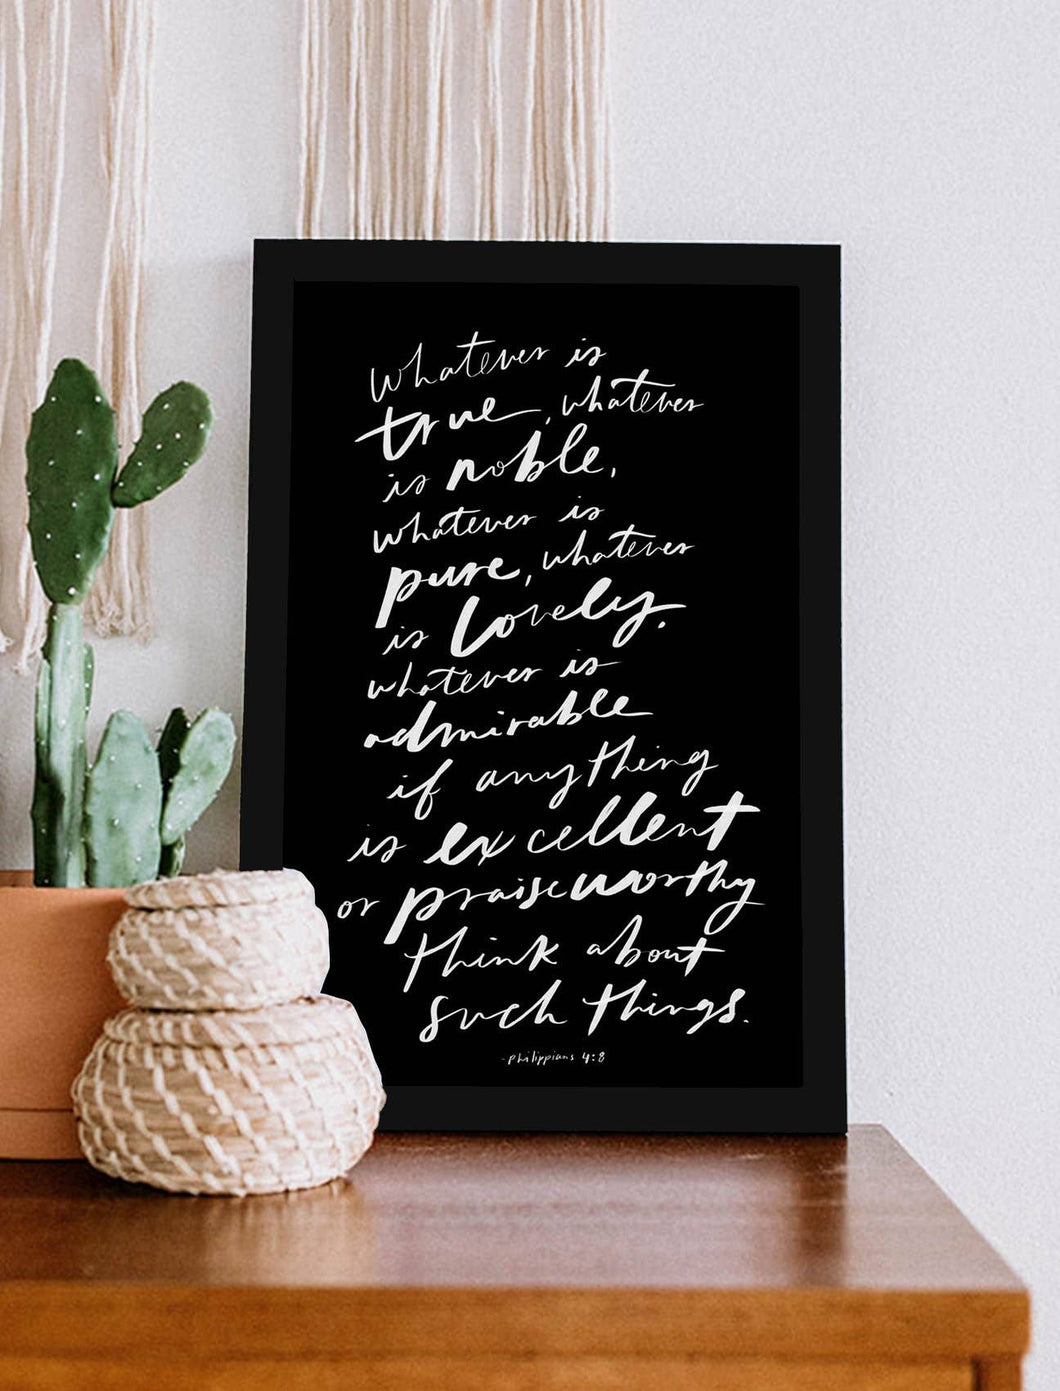 Whatever is
true, whatever
is noble,
whatever is
pure, whatever
is lovely.
whatever is
admirable
if anything
is excellent
or praiseworthy
think about
such things.
-philippians 4:8